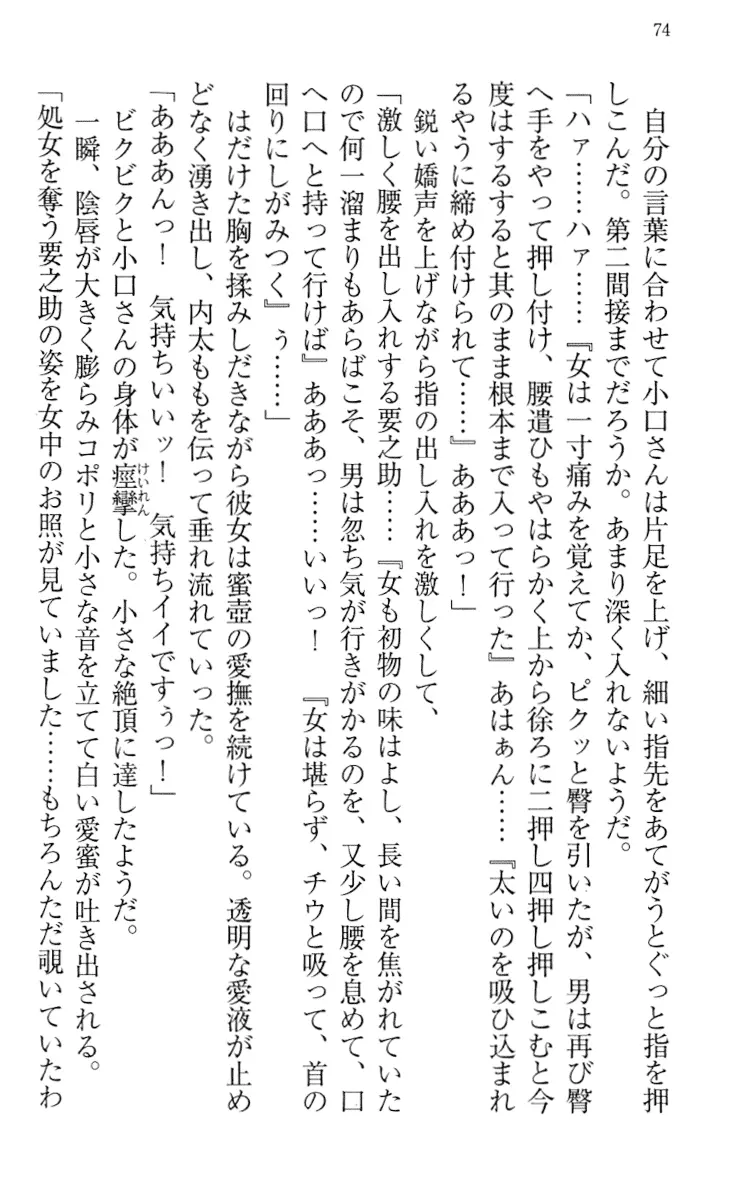 74
自分の言葉に合わせて小口さんは片足を上げ、細い指先をあてがうとぐっと指を押
しこんだ。第二間接までだろうか。あまり深く入れないようだ。
「ハァ……ハァ……『女は一寸痛みを覚えてか、ピクッと臀を引いたが、男は再び臀
へ手をやって押し付け、腰遣ひもやはらかく上から徐ろに二押し四押し押しこむと今
度はするすると其のまま根本まで入って行った』あはぁん……『太いのを吸ひ込まれ
るやうに締め付けられて……』あああっ！」
鋭い嬌声を上げながら指の出し入れを激しくして、
「激しく腰を出し入れする要之助……『女も初物の味はよし、長い間を焦がれていた
ので何一溜まりもあらばこそ、男は忽ち気が行きがかるのを、又少し腰を息めて、口
へ口へと持って行けば』あああっ……いいっ！　『女は堪らず、チウと吸って、首の
回りにしがみつく』ぅ……」
はだけた胸を揉みしだきながら彼女は蜜壺の愛撫を続けている。透明な愛液が止め
どなく湧き出し、内太ももを伝って垂れ流れていった。
「あああんっ！　気持ちいいッ！　気持ちイイですぅっ！」
ビクビクと小口さんの身体が痙攣けいれんした。小さな絶頂に達したようだ。
一瞬、陰唇が大きく膨らみコポリと小さな音を立てて白い愛蜜が吐き出される。
「処女を奪う要之助の姿を女中のお照が見ていました……もちろんただ覗いていたわ